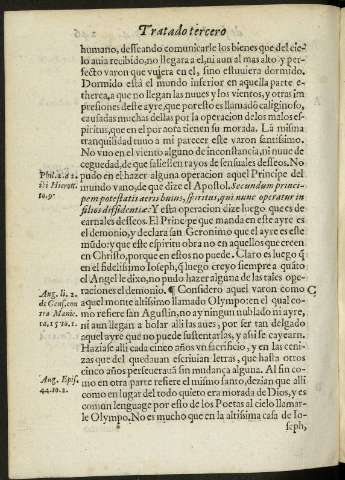 Tratado tercero
humano, desseando comunicarle los bienes que del cie-
lo auia recibido, no llegara a el, ni aun al mas alto y per-
fecto varon que vuiera en el, sino estuuiera dormido.
Dormido està el mundo inferior en aquella parte e-
therea, a que no llegan las nuues y los vientos, y otras im
presiones deste ayre, que por esto es llamado caliginoso,
causadas muchas dellas por la operacion de los malos es-
piritus, que en el por aora tienen su morada. La misma
tranquilidad tuuo a mi parecer este varon santissimo.
No vuo en el viento alguno de inconstancia, ni nuue de
ceguedad, de que saliessen rayos de sensuales desseos. No
pudo en el hazer alguna operacion aquel Principe del
mundo vano, de que dize el Apostol. Secundum princi-
pem potestatis aeris huius, spiritus, qui nunc operatur in
filios diffidentiæ: Y esta operacion dize luego que es de
carnales desseos. El Principe que manda en este ayre es
el demonio, y declara san Geronimo que el ayre es este
mũdo: y que este espiritu obra no en aquellos que creen
en Christo, porque en estos no puede. Claro es luego q̃
en el fidelissimo Ioseph, q̃ luego creyo siempre a quãto
el Angel le dixo, no pudo hazer alguna de las tales ope-
raciones el demonio. ¶ Considero aquel varon como a
aquel monte altissimo llamado Olympo: en el qual co-
mo refiere san Agustin, no ay ningun nublado ni ayre,
ni aun llegan a bolar alli las aues, por ser tan delgado
aquel ayre que no puede sustentarlas, y assi se cayeran.
Haziase alli cada cinco años vn sacrificio, y en las ceni-
zas que del quedauan escriuian letras, que hasta otros
cinco años perseueraua sin mudança alguna. Al fin co-
mo en otra parte refiere el mismo santo, dezian que alli
como en lugar del todo quieto era morada de Dios, y es
comun lenguage por esto de los Poetas al cielo llamar-
le Olympo. No es mucho que en la altissima casa de Io-
seph,
ibi Hieron.
to. 9.
Aug. li. 2.
de Gen. con
tra Manic.
to. 1.
C
Aug. Epis.
44. to. 2.